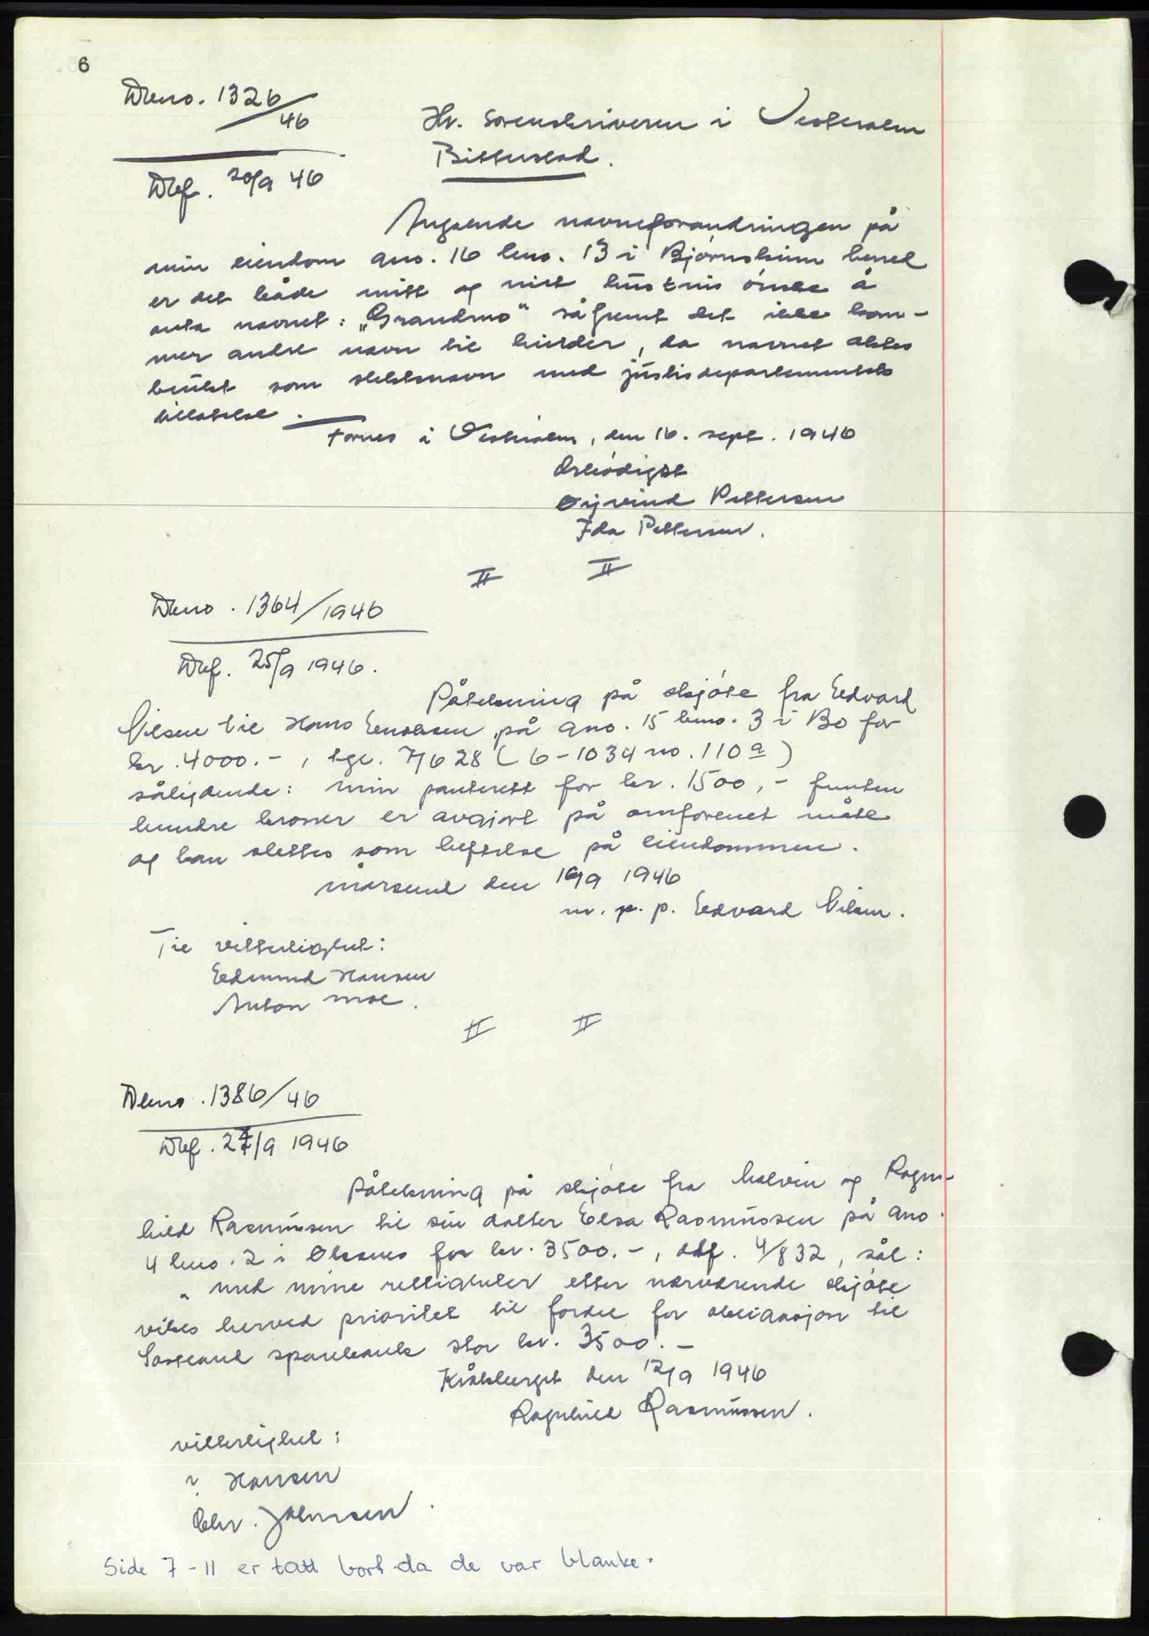 6
Dbno. 1326/46
Hr. Sorenskriveren i Vesterålen
Bitterstad.
Dbf. 20/9 46
Angående navneforandringen på
min eiendom gno. 16 bno. 13 i Bjørnskinn herred
er det både mitt og mit hustrus ønske å
anta navnet: „Grandmo" såfremt det ikke kom-
mer andre navn til hinder, da navnet aktes
brukt som slektsnavn med justisdepartementets
tillatelse.
Fornes i Vesterålen, den 16. sept. 1946
Ærbødigst
Øyvind Pettersen
Ida Pettersen.
Dbno. 1364/1946
Dbf. 25/9 1946.
Påtekning på skjøte fra Edvard
Nilsen til Hans Enoksen på gno. 15 bno. 3 i Bø for
kr. 4000.-, tgl. 7/6 28 (6-1034 no. 110 a)
sålydende: min panterett for kr. 1500,- femten
hundre kroner er avgjort på omforenet måte
og kan slettes som heftelse på eiendommen.
den 16/9 1946
m. p. p. Edvard Nilsen.
Til vitterlighet:
Edmund Hansen
Anton Moe.
Dbno. 1386/46
Dbf. 27/9 1946
Påtekning på skjøte fra Halvin og Ragn-
hild Rasmussen til sin datter Elsa Rasmussen på gno.
4 bno. 2 i Øksnes for kr. 3500.-, dbf. 4/8 32, sål:
" med mine rettigheter etter nærværende skjøte
vikes herved prioritet til fordel for obligasjon til
Sortland sparebank stor kr. 3500.-
Kråkberget den 12/9 1946
Ragnhild Rasmussen.
vitterlighet:
Hansen
Chr. Johnsen.
Side 7-11 er tatt bort da de var blanke.